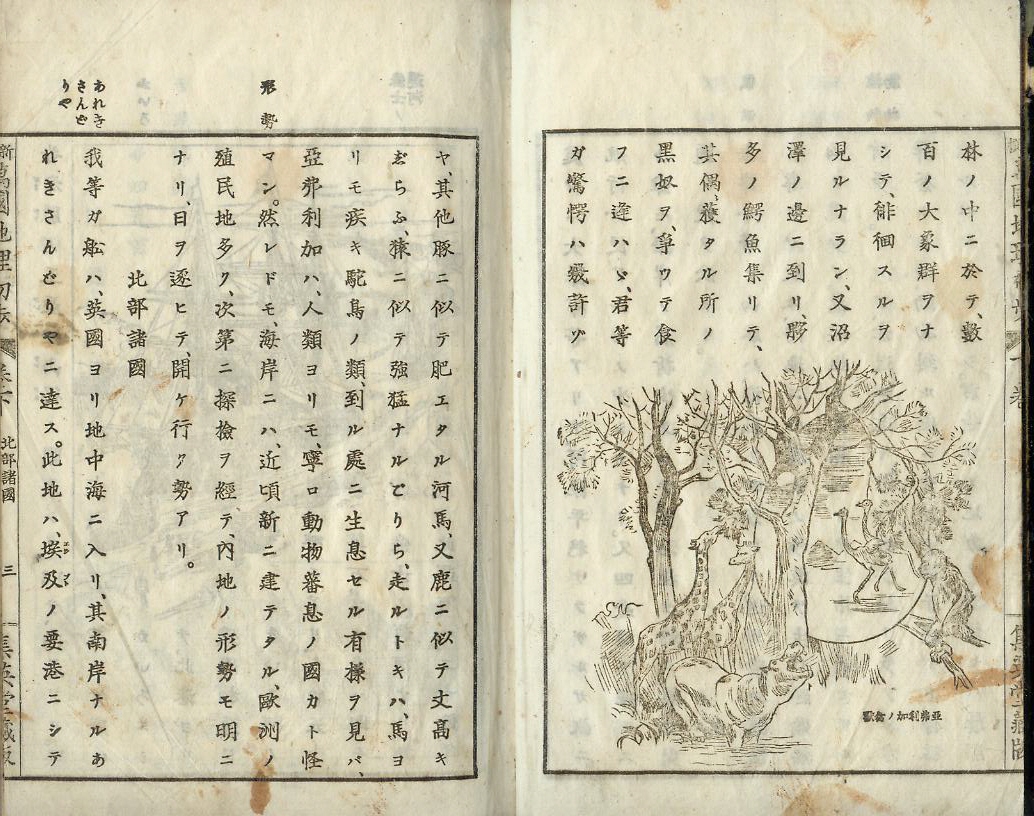 林ノ中ニ於テ、數
百ノ大象群ヲナ
シテ、徘徊スルヲ
見ルナラン、又沼
澤ノ邊ニ到リ、夥
多ノ鰐魚集リテ、
其偶、獲タル所ノ
黒奴ヲ、爭ウテ食
フニ逢ハヾ、君等
ガ驚愕ハ、幾許ゾ
亞弗利加ノ禽獸
ヤ、其他豚ニ似テ肥エタル河馬、又鹿ニ似テ丈高キ
ぢらふ、猿ニ似テ強猛ナルごりら、走ルトキハ、馬ヨ
リモ疾キ駝鳥ノ類、到ル處ニ生息セル有樣ヲ見バ、
亞弗利加ハ、人類ヨリモ、寧ロ動物蕃息ノ國カト怪
形勢
マン。然レドモ、海岸ニハ、近頃新ニ建テタル、歐洲ノ
殖民地多ク、次第ニ探檢ヲ經テ、内地ノ形勢モ明ニ
ナリ、日ヲ逐ヒテ、開ケ行ク勢アリ。
北部諸國
あれきさんどりや
我等ガ舩ハ、英國ヨリ地中海ニ入リ、其南岸ナルあ
れきさんどりやニ達ス。此地ハ、埃及ノ要港ニシテ
北部諸國
三